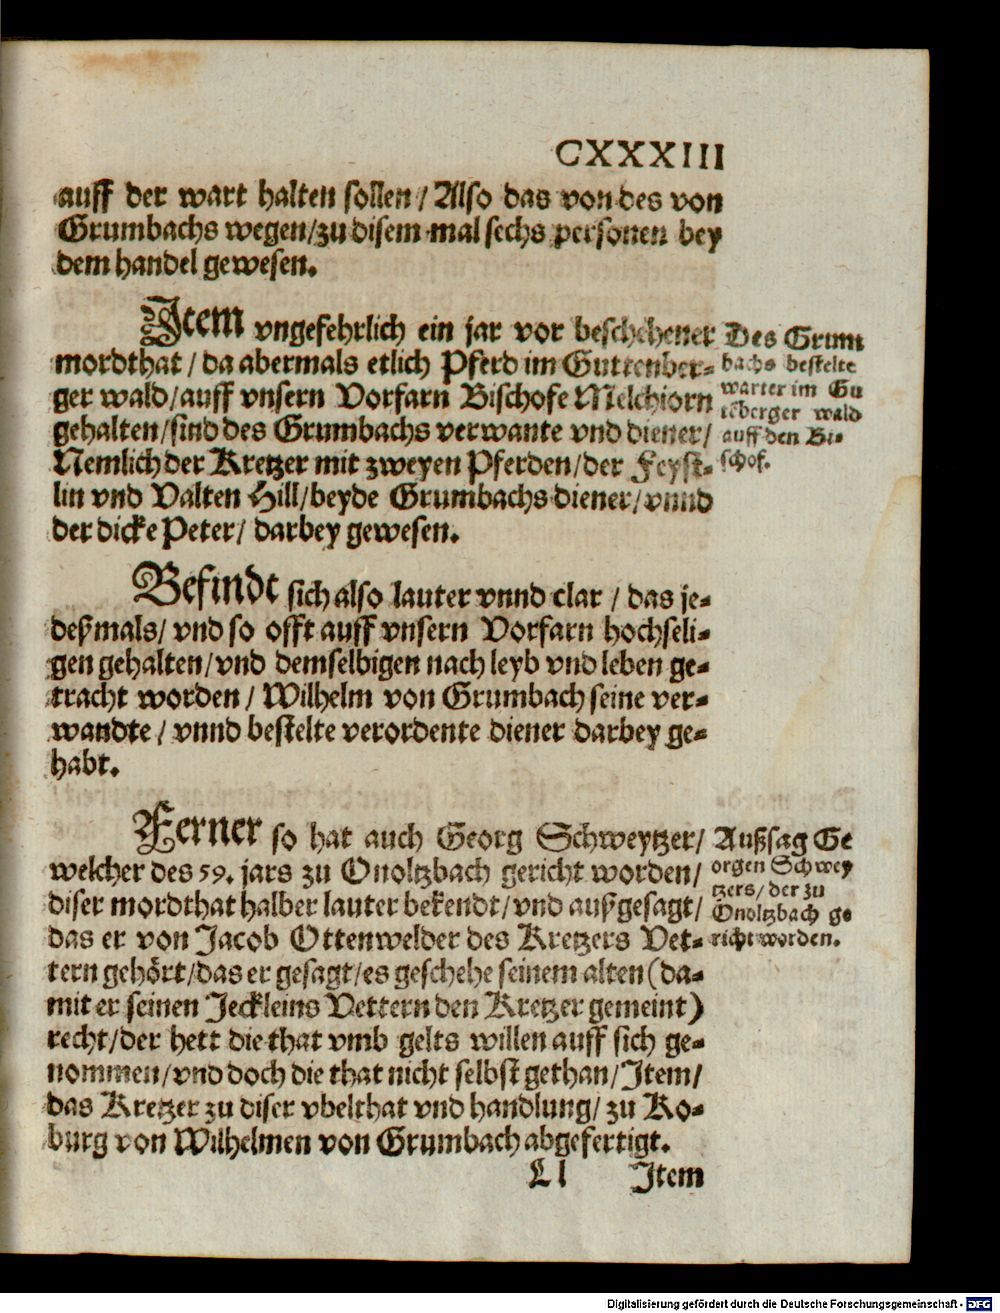 CXXXIII
auff der wart halten sollen / Also das von des von
Grumbachs wegen/zu disem mal sechs personen bey
dem handel gewesen.
Item vngefehrlich ein jar vor beschehener
mordthat / da abermals etlich Pferd im Guttenber-
ger wald/auff vnsern Vorfarn Bischofe Melchiorn
gehalten/sind des Grumbachs verwante vnd diener/
Nemlich der Kretzer mit zweyen Pferden/der Feyst-
lin vnd Valten Hill/beyde Grumbachs diener/vnnd
der dicke Peter/ darbey gewesen.
Des Grum
bachs bestelte
warter im Gu
tteberger wald
auff den Bi-
schof.
Befindt sich also lauter vnnd clar / das je-
deßmals/ vnd so offt auff vnsern Vorfarn hochseli-
gen gehalten/vnd demselbigen nach leyb vnd leben ge-
tracht worden / Wilhelm von Grumbach seine ver-
wandte / vnnd bestelte verordente diener darbey ge-
habt.
Ferner so hat auch Georg Schweytzer/
welcher des 59. jars zu Onoltzbach gericht worden/
diser mordthat halber lauter bekendt/vnd außgesagt/
das er von Jacob Ottenwelder des Kretzers Vet-
tern gehört/das er gesagt/es geschehe seinem alten (da-
mit er seinen Jeckleins Vettern den Kretzer gemeint)
recht/der hett die that vmb gelts willen auff sich ge-
nommen/vnd doch die that nicht selbst gethan/Item/
das Kretzer zu diser vbelthat vnd handlung/ zu Ko-
burg von Wilhelmen von Grumbach abgefertigt.
Außsag Ge
orgen Schwey
tzers/ der zu
Onoltzbach ge
richt worden.
Ll Item
Digitalisierung gefördert durch die Deutsche Forschungsgemeinschaft - DFG